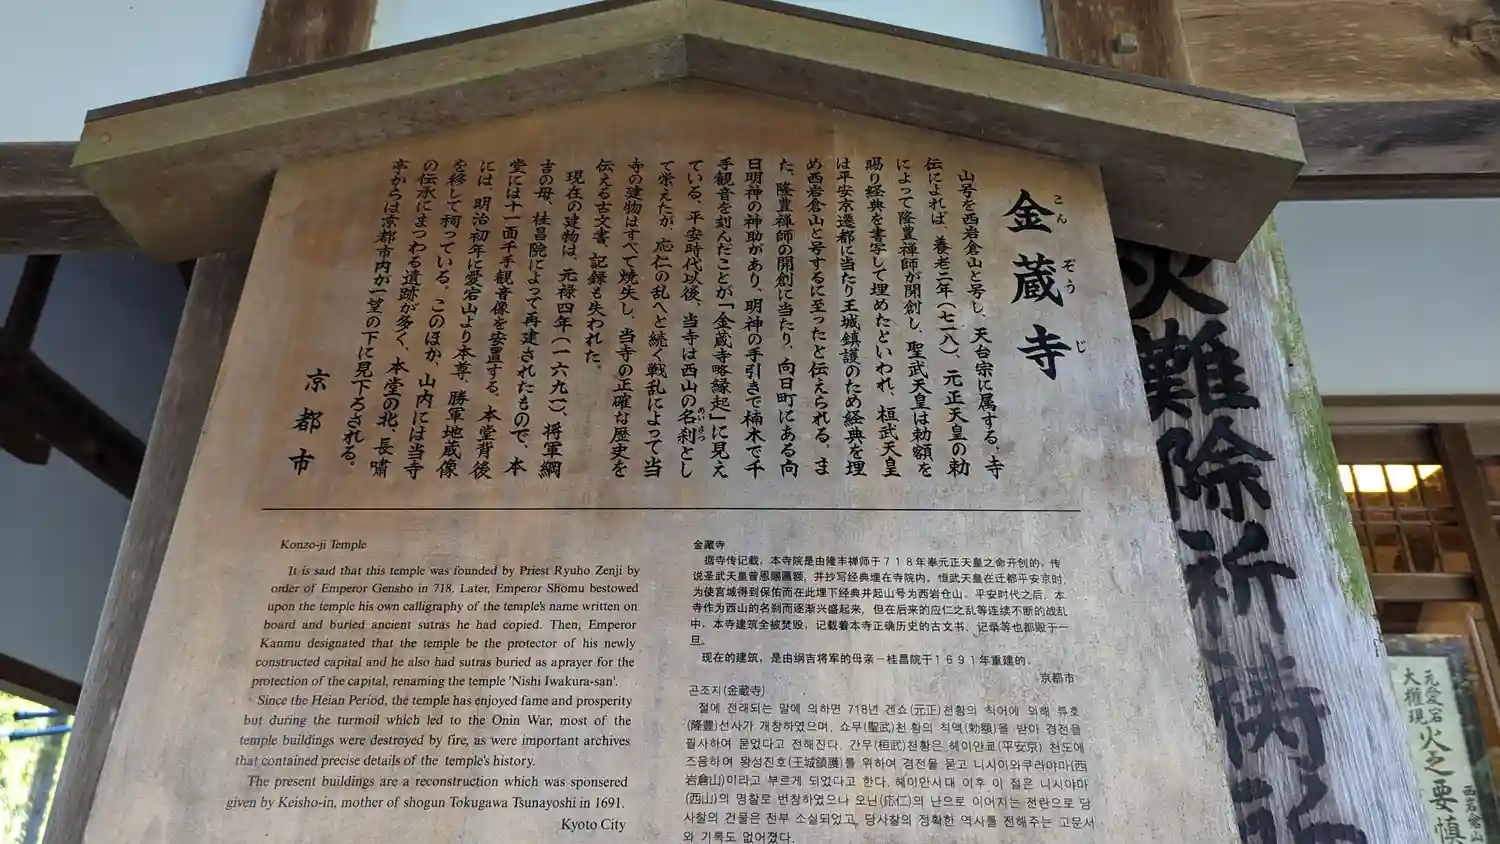 金蔵寺
こんぞうじ
山号を西岩倉山と号し、天台宗に属する。寺
伝によれば、養老二年(七一八)、元正天皇の勅
によって隆豊禅師が開創し、聖武天皇は勅額を
賜り経典を書写して埋めたといわれ、桓武天皇
は平安京遷都に当たり王城鎮護のため経典を埋
め西岩倉山と号するに至ったと伝えられる。ま
た、隆豊禅師の開創に当たり、向日町にある向
日明神の神助があり、明神の手引きで楠木で千
手観音を刻んだことが「金蔵寺略縁起」に見え
ている。平安時代以後、当寺は西山の名刹とし
めいさつ
て栄えたが、応仁の乱へと続く戦乱によって当
寺の建物はすべて焼失し、当寺の正確な歴史を
伝える古文書、記録も失われた。
現在の建物は、元禄四年(一六九一)、将軍綱
吉の母、桂昌院によって再建されたもので、本
堂には十一面千手観音像を安置する。本堂背後
には、明治初年に愛宕山より本尊、勝軍地蔵像
を移して祠っている。このほか、山内には当寺
の伝承にまつわる遺跡が多く、本堂の北、長嘯
亭からは京都市内が一望の下に見下ろされる。
京都市
Konzo-ji Temple
It is said that this temple was founded by Priest Ryuho Zenji by
order of Emperor Gensho in 718. Later, Emperor Shomu bestowed
upon the temple his own calligraphy of the temple's name written on
board and buried ancient sutras he had copied. Then, Emperor
Kanmu designated that the temple be the protector of his newly
constructed capital and he also had sutras buried as aprayer for the
protection of the capital, renaming the temple 'Nishi Iwakura-san'.
Since the Heian Period, the temple has enjoyed fame and prosperity
but during the turmoil which led to the Onin War, most of the
temple buildings were destroyed by fire, as were important archives
that contained precise details of the temple's history.
The present buildings are a reconstruction which was sponsered
given by Keisho-in, mother of shogun Tokugawa Tsunayoshi in 1691.
Kyoto City
金藏寺
据寺传记载，本寺院是由隆丰禅师于７１８年奉元正天皇之命开创的，传
说圣武天皇曾恩赐匾额，并抄写经典埋在寺院内。恒武天皇在迁都平安京时，
为使宫城得到保佑而在此埋下经典并起山号为西岩仓山。平安时代之后，本
寺作为西山的名刹而逐渐兴盛起来，但在后来的应仁之乱等连续不断的战乱
中，本寺建筑全被焚毁，记载着本寺正确历史的古文书、记录等也都毁于一
旦。
现在的建筑，是由纲吉将军的母亲－桂昌院于１６９１年重建的。
京都市
곤조지(金蔵寺)
절에 전래되는 말에 의하면 718년 겐쇼(元正)천황의 칙어에 의해 류호
(隆豊)선사가 개창하였으며, 쇼무(聖武)천황의 칙액(勅額)을 받아 경전을
필사하여 묻었다고 전해진다. 간무(桓武)천황은 헤이안쿄(平安京) 천도에
즈음하여 왕성진호(王城鎮護)를 위하여 경전을 묻고 니시이와쿠라야마(西
岩倉山)이라고 부르게 되었다고 한다. 헤이안시대 이후 이 절은 니시야마
(西山)의 명찰로 번창하였으나 오닌(応仁)의 난으로 이어지는 전란으로 당
사찰의 건물은 전부 소실되었고, 당사찰의 정확한 역사를 전해주는 고문서
와 기록도 없어졌다.
火難除祈祷
元愛宕
大権現
火之要慎
西岩倉山